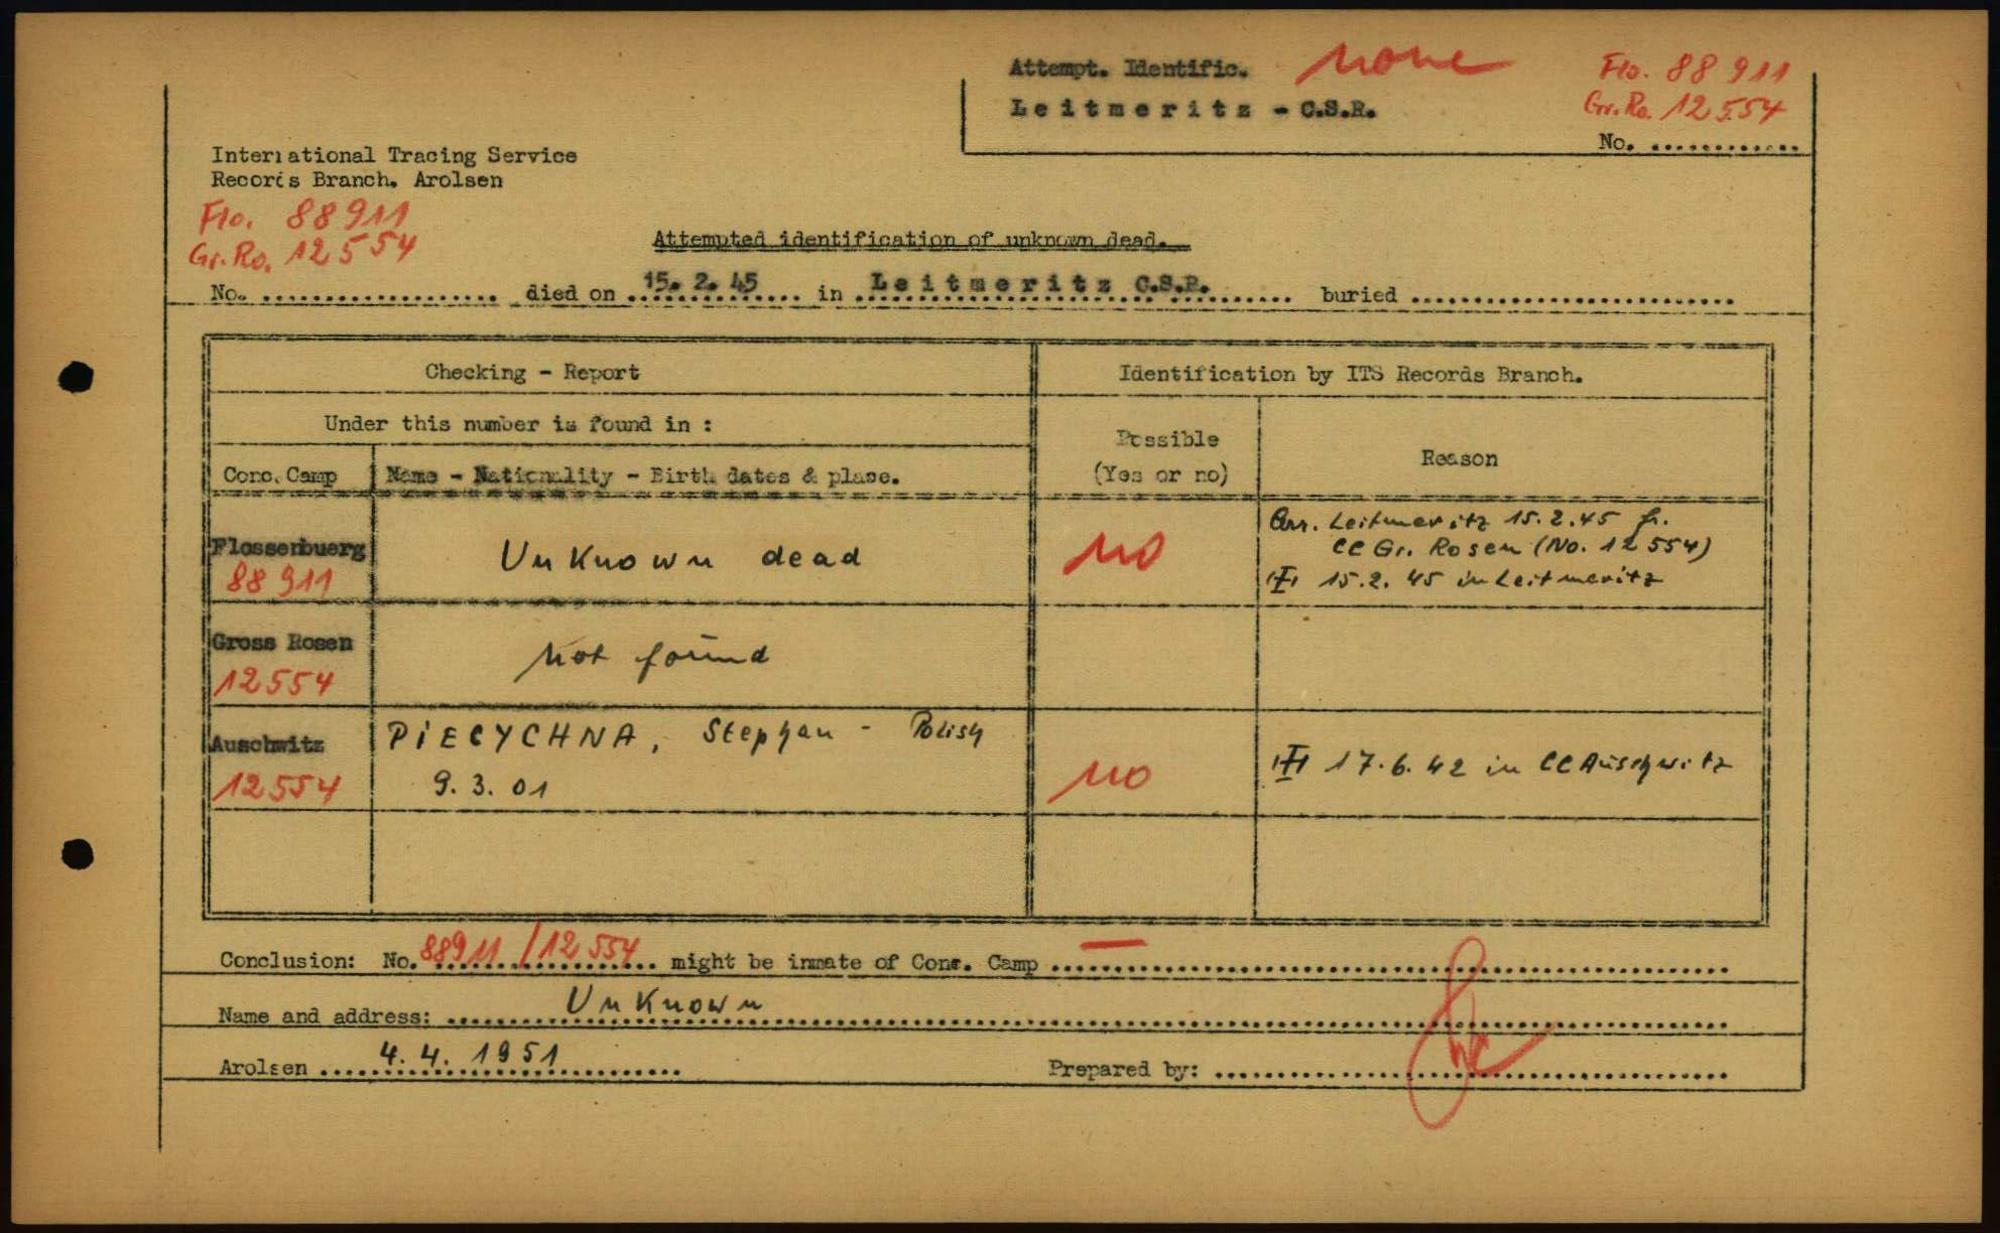 Attempt. Identific. none
Flo. 88 911
Leitmeritz - C.S.R.
Gr.Ro. 12554
No. .............
International Tracing Service
Records Branch. Arolsen
Flo. 88911
Gr.Ro. 12554
Attempted identification of unknown dead.
No. .................... died on 15. 2. 45 in Leitmeritz C.S.R. buried ..............................
Checking - Report
Identification by ITS Records Branch.
Under this number is found in :
Possible
(Yes or no)
Reason
Conc. Camp
Name - Nationality - Birth dates & place.
Flossenbuerg
88 911
Unknown dead
no
Arr. Leitmeritz 15.2.45 fr.
CC Gr. Rosen (No. 12 554)
15.2. 45 in Leitmeritz
Gross Rosen
12554
Not found
Auschwitz
12554
PIECYCHNA, Stephan - Polish
9. 3. 01
no
17. 6. 42 in CC Auschwitz
Conclusion: No. 88911/12554 might be inmate of Conc. Camp —
Name and address: Unknown
Arolsen 4. 4. 1951
Prepared by: